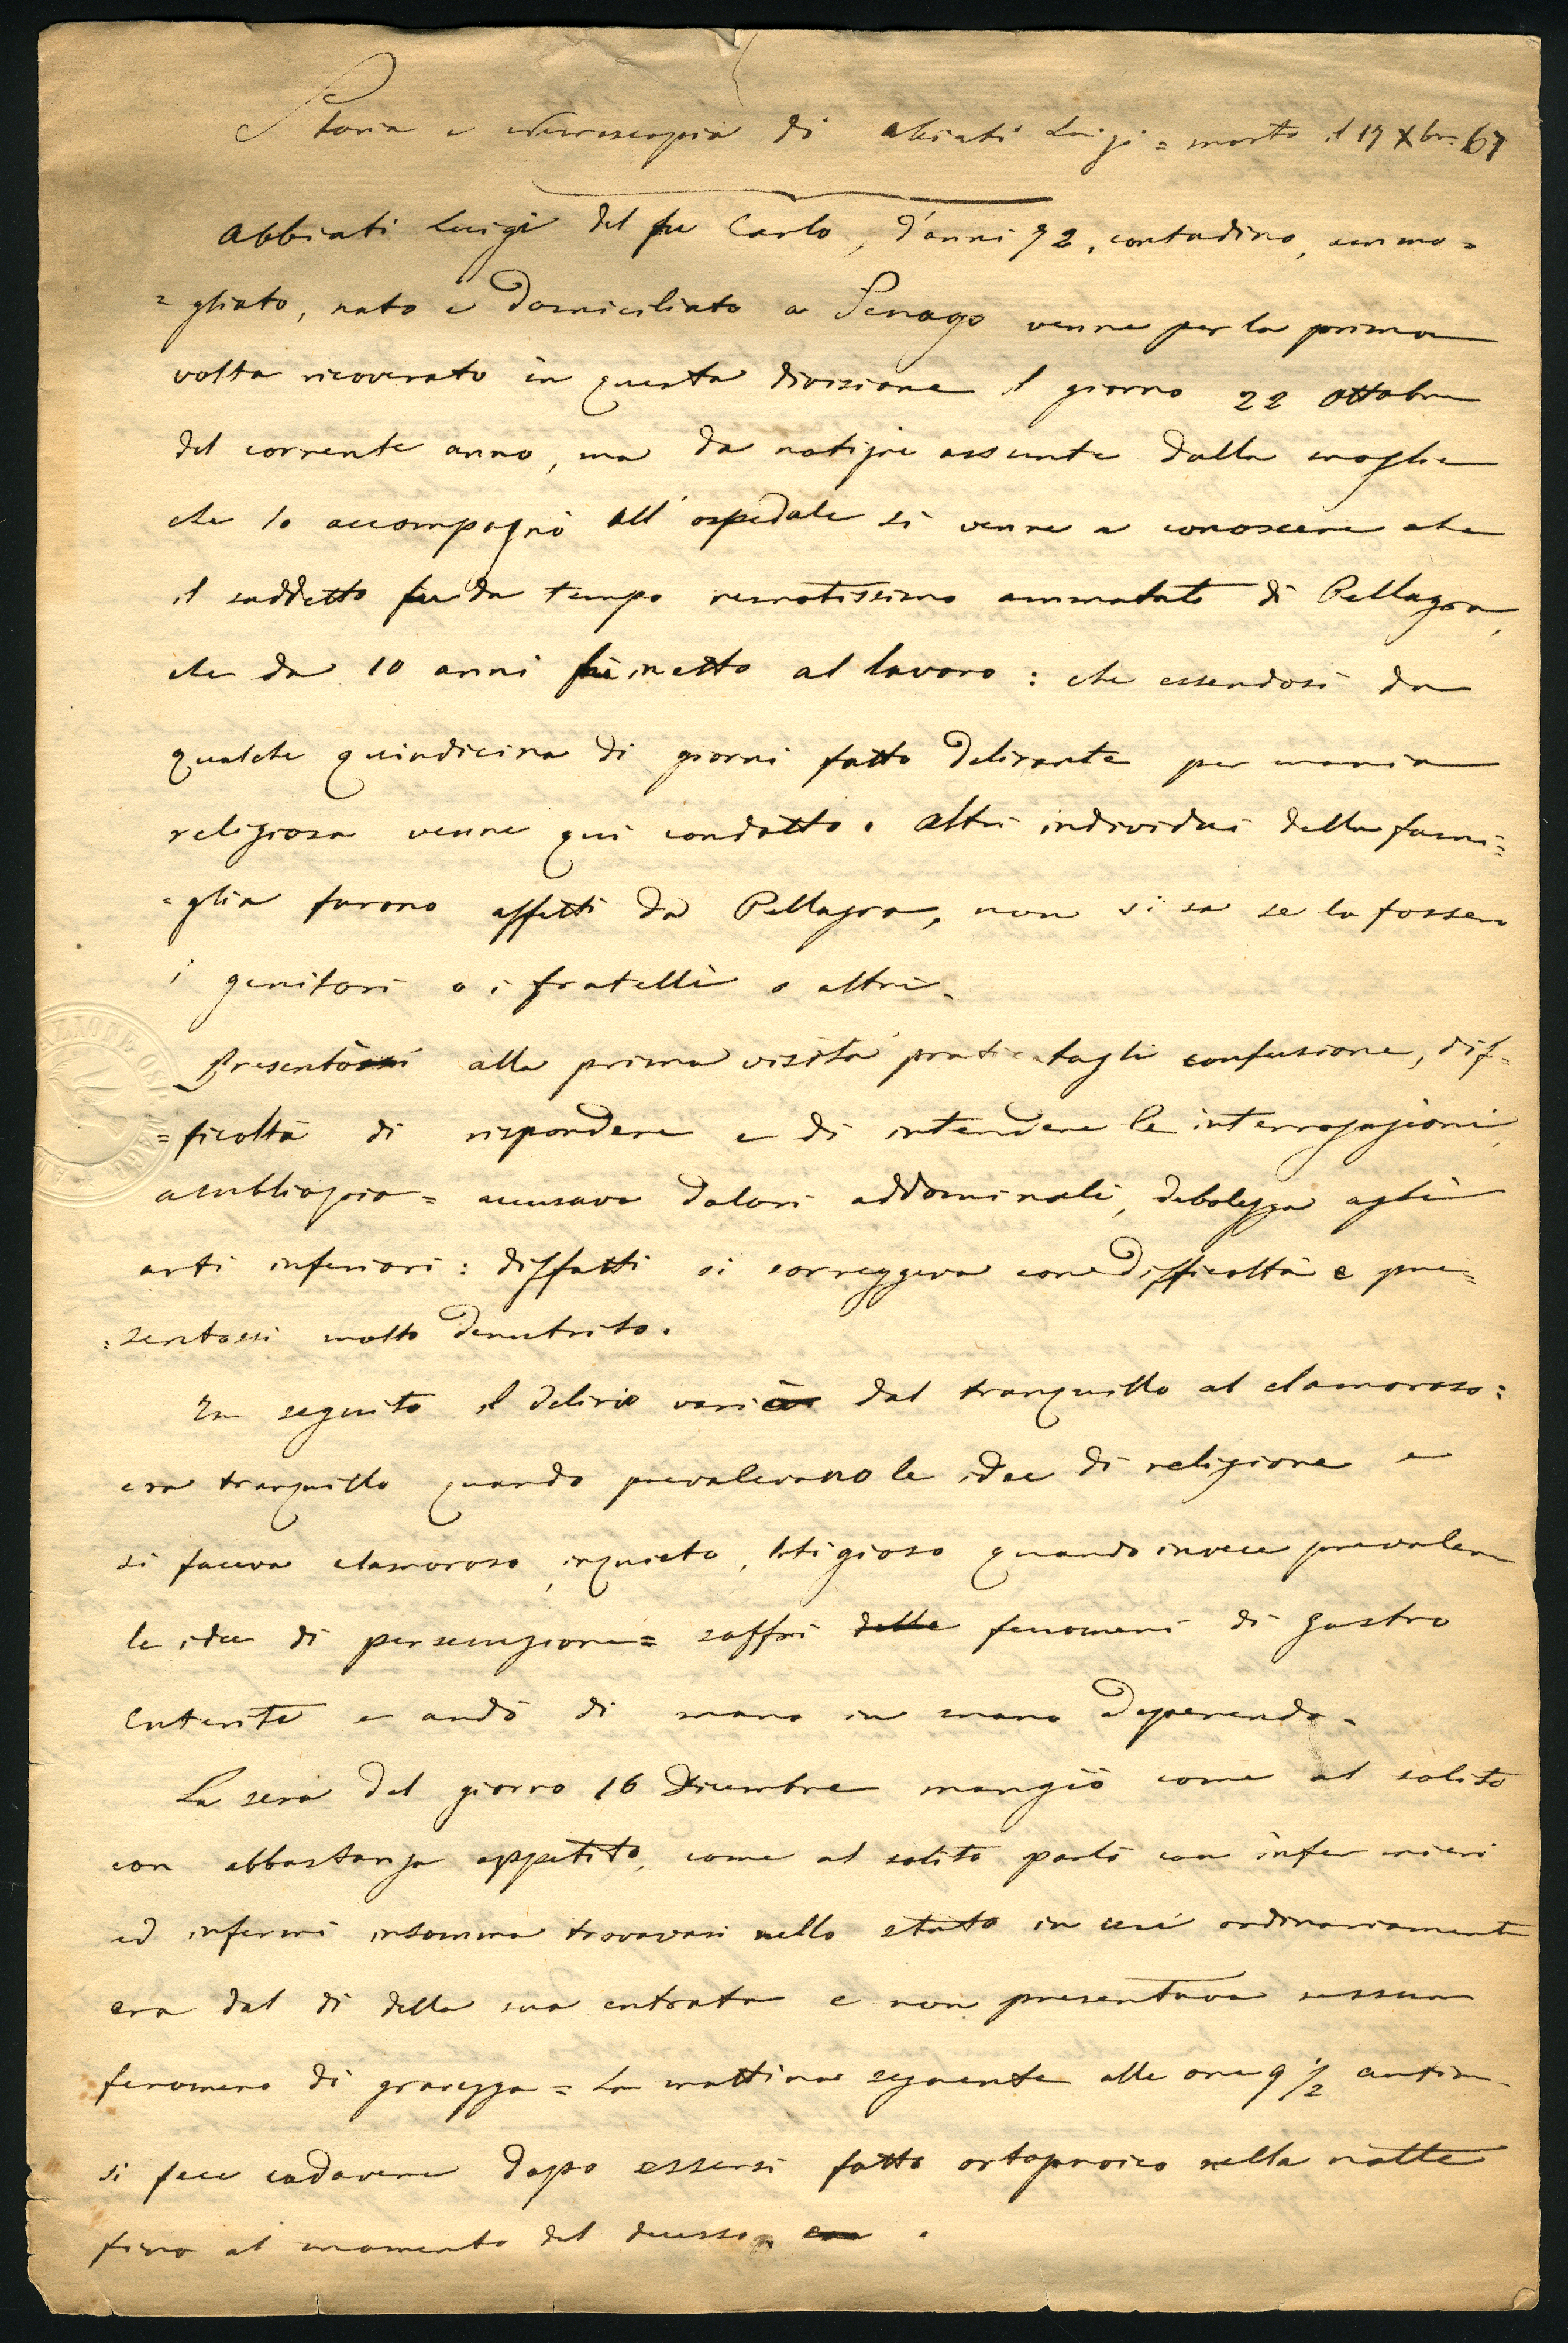 Storia e Necroscopia di Abiati Luigi = morto il 17 Xbre 67
Abbiati Luigi del fu Carlo, d'anni 72, contadino, ammo=
=gliato, nato e domiciliato a Senago venne per la prima
volta ricoverato in questa divisione il giorno 22 Ottobre
del corrente anno, ma da notizie assunte dalla moglie
che lo accompagnò all'ospedale si venne a conoscere che
il suddetto fu da tempo remotissimo ammalato di Pellagra,
che da 10 anni fu inetto al lavoro: che essendosi da
qualche quindicina di giorni fatto delirante per mania
religiosa venne qui condotto. Altri individui della fami=
=glia furono affetti da Pellagra, non si sa se lo fossero
i genitori o i fratelli o altri.
Presentò alla prima visita praticatagli confusione, dif=
=ficoltà di rispondere e di intendere le interrogazioni,
ambliopia = accusava dolori addominali, debolezza agli
arti inferiori: diffatti si sorreggeva con difficoltà e pre=
=sentossi molto denutrito.
In seguito il delirio variò dal tranquillo al clamoroso:
era tranquillo quando prevalevano le idee di religione e
si faceva clamoroso, inquieto, litigioso quando invece prevaleva
le idee di persecuzione = soffrì delle fenomeni di gastro
enterite e andò di mano in mano deperendo.
La sera del giorno 16 Dicembre mangiò come al solito
con abbastanza appetito, come al solito parlò con infermieri
ed infermi insomma trovavasi nello stato in cui ordinariamente
era dal dì della sua entrata e non presentava nessun
fenomeno di gravezza = La mattina seguente alle ore 9 1/2 antim.
si fece cadavere dopo essersi fatto ortopnoico nella notte
fino al momento del decesso.